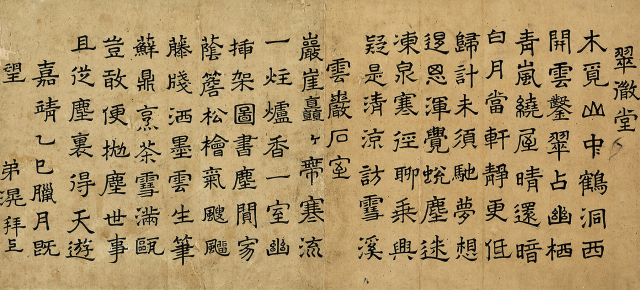 翠微堂
木覓山中鶴洞西
開雲鑿翠占幽栖
青嵐繞屋晴還暗
白月當軒靜更低
歸計未須馳夢想
恩渾覺蛻塵迷
凍泉寒徑聊乗興
疑是清涼訪雪溪
雲巖石室
巖崖矗々帶寒流
一炷爐香一室幽
揷架圖書塵閒寂
蔭簷松檜氣颼飀
藤牋洒墨雲生筆
蘇鼎烹茶雪滿甌
豈敢便抛塵世事
且從塵裏得天遊
嘉靖乙巳臘月旣
望 弟滉拜上